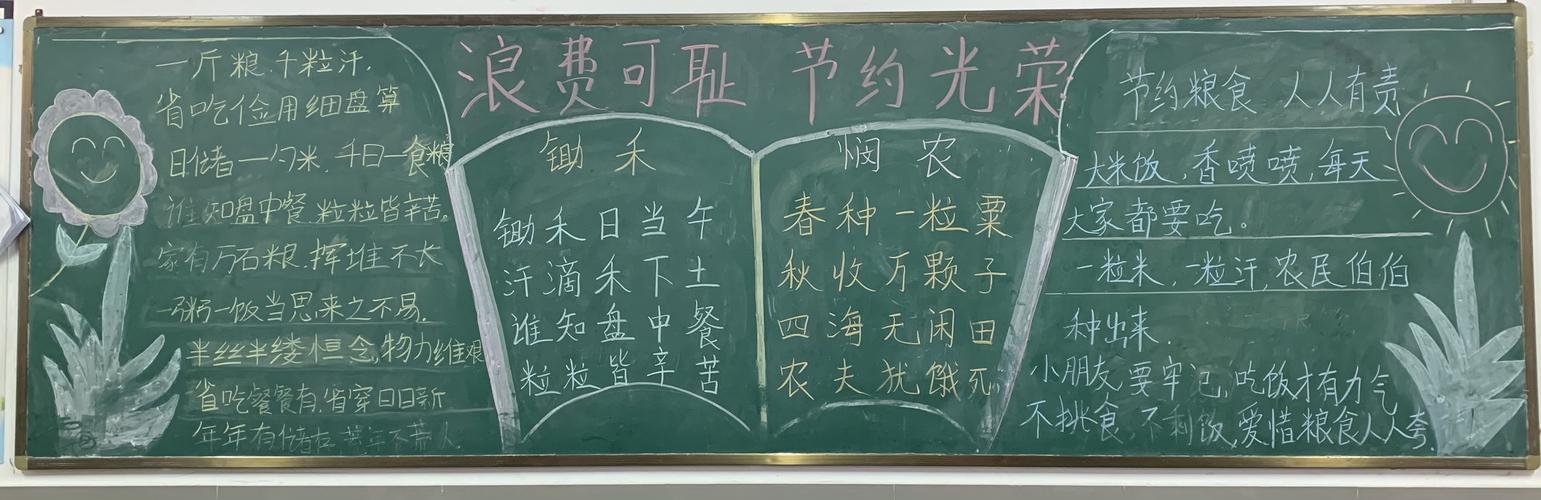 浪费可耻 节约光荣
一斤粮.千粒汗.
省吃俭用细盘算
日储一勺米.千日一食粮
谁知盘中餐.粒粒皆辛苦。
家有万石粮.挥堆不长
一粥一饭当思来之不易.
半丝半缕恒念,物力维艰
省吃餐餐有.省穿日日新
年年有储存.荒年不荒人
锄禾
锄禾日当午
汗滴禾下土
谁知盘中餐
粒粒皆辛苦
悯农
春种一粒粟
秋收万颗子
四海无闲田
农夫犹饿死
节约粮食 人人有责
大米饭.香喷喷,每天
大家都要吃。
一粒米.一粒汗,农民伯伯
种出来.
小朋友要牢记,吃饭才有力气
不挑食.不剩饭,爱惜粮食人人夸